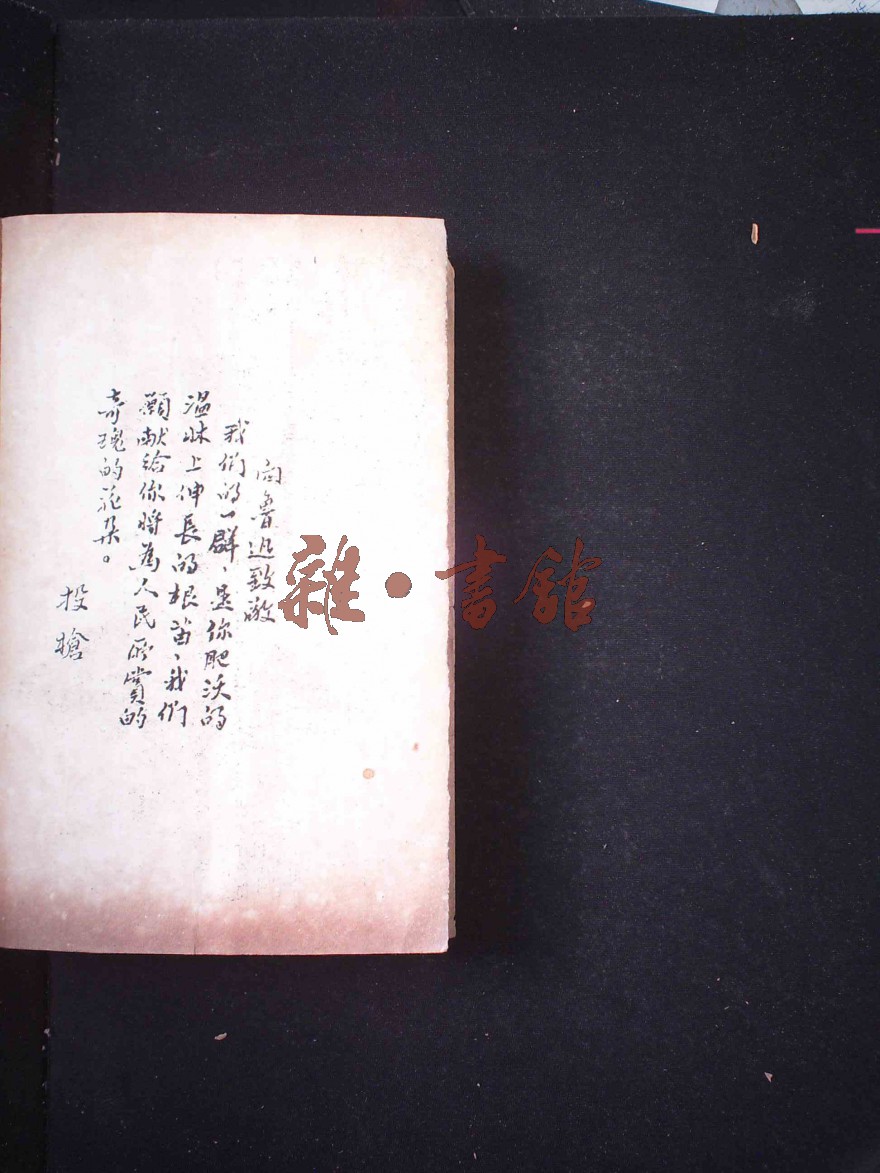 向魯迅致敬
我们的一群、是你肥沃的
温床上伸長的根苗、我们
願献給你將為人民所賞的
奇瑰的花朵。
投槍
雜·書館